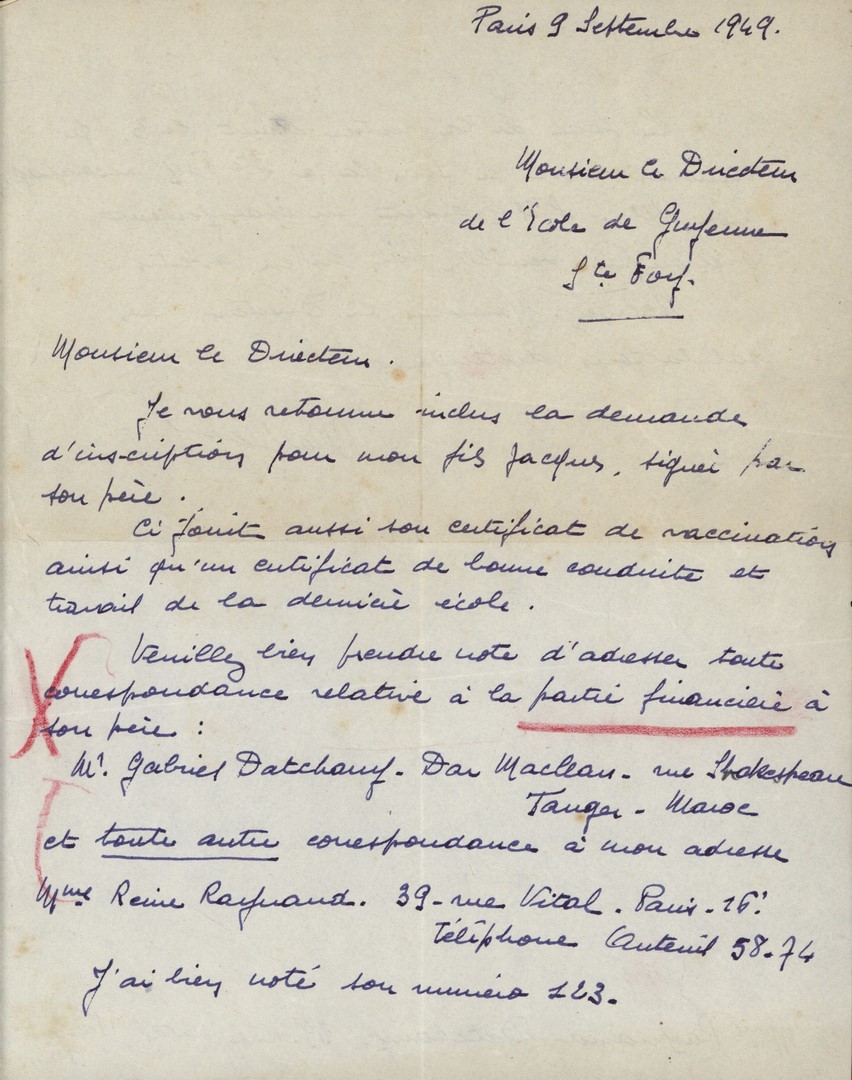 Paris 9 Septembre 1949.
Monsieur le Directeur
de l'École de Guyenne
Ste Foy.
Monsieur le Directeur.
Je vous retourne inclus la demande
d'inscription pour mon fils Jacques, signée par
son père.
Ci joint aussi son certificat de vaccination
ainsi qu'un certificat de bonne conduite et
travail de la dernière école.
Veuillez bien prendre note d'adresser toute
correspondance relative à la partie financière à
son père :
Mr. Gabriel Dar Maclean - rue Shakespeare
Tanger - Maroc
et toute autre correspondance à mon adresse
Mme Reine Raynaud. 39 - rue Vital. Paris - 16e
téléphone Auteuil 58-74
J'ai bien noté son numéro 123.